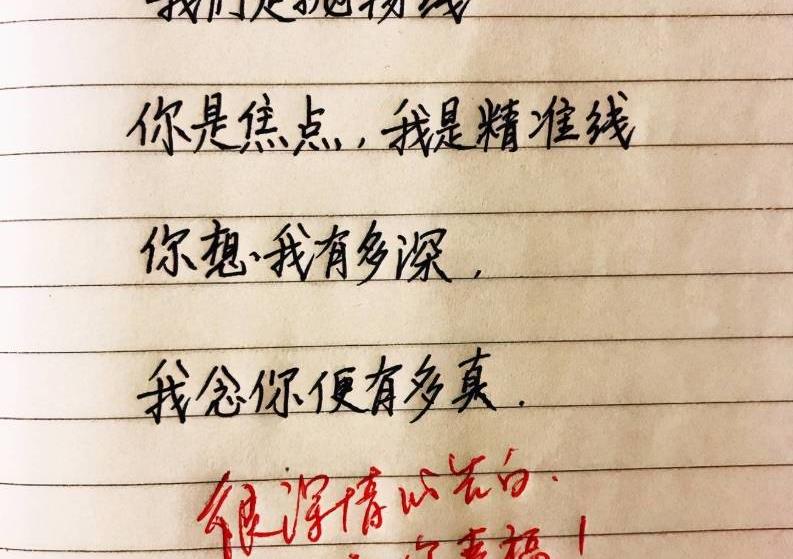 我们是抛物线
你是焦点,我是精准线
你想我有多深,
我念你便有多真.
很深情的告白.
你幸福!